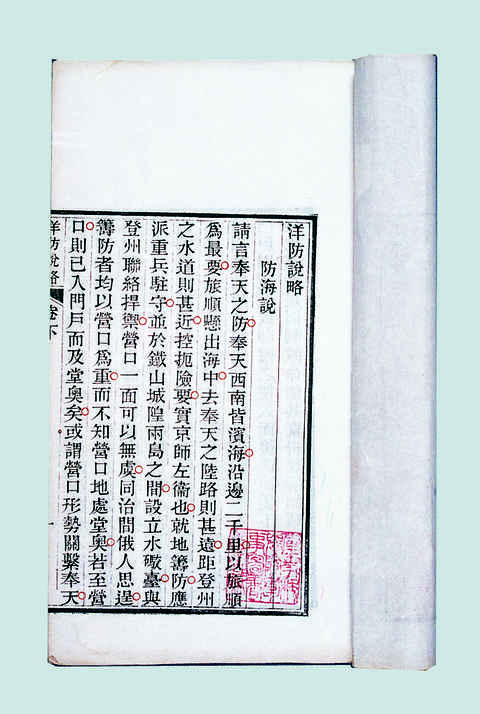 洋防說略
防海說
請言奉天之防奉天西南皆濱海沿邊二千里以旅順
爲最要旅順懸出海中去奉天之陸路則甚遠距登州
之水道則甚近控扼險要實京師左衞也就地籌防應
派重兵駐守並於鐵山城隍兩島之間設立水礮臺與
登州聯絡捍禦營口一面可以無虞同治間俄人思逞
籌防者均以營口爲重而不知營口地處堂奧若至營
口則已入門戶而及堂奧矣或謂營口形勢關繫奉天
洋防說略 卷下 一